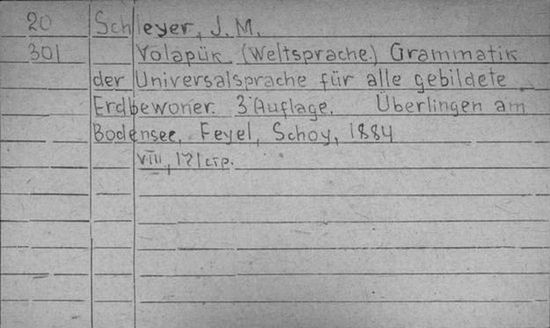 20 Schleyer, J. M.
301 Volapük (Weltsprache) Grammatik
der Universalsprache für alle gebildete
Erdbewoner. 3 Auflage. Überlingen am
Bodensee, Feyel, Schoy, 1884
VIII, 121 стр.